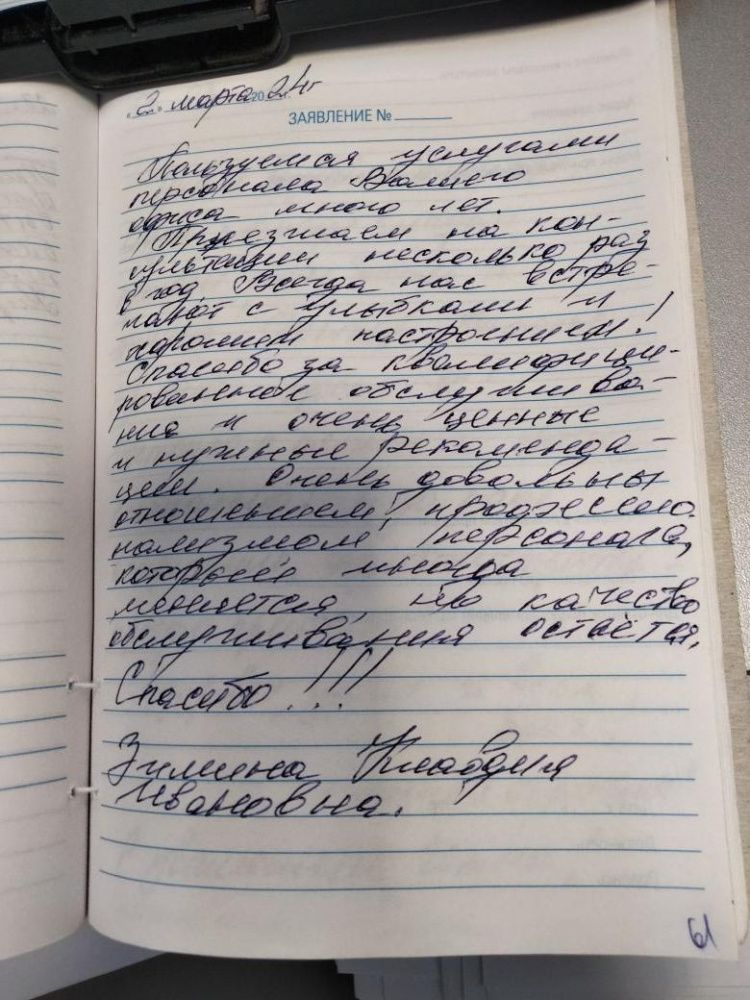 "2" марта 2024г
ЗАЯВЛЕНИЕ №
Пользуемся услугами
персонала Вашего
офиса много лет.
Приезжаем на кон-
сультации несколько раз
в год. Всегда нас встре-
чают с улыбками и
хорошем настроением!
Спасибо за квалифици-
рованное обслужива-
ние и очень ценные
и нужные рекоменда-
ции. Очень довольны
отношением, профессио-
нализмом персонала,
который иногда
меняется, но качество
обслуживания остаётся.
Спасибо!!!
Зимина Клавдия
Ивановна.
61